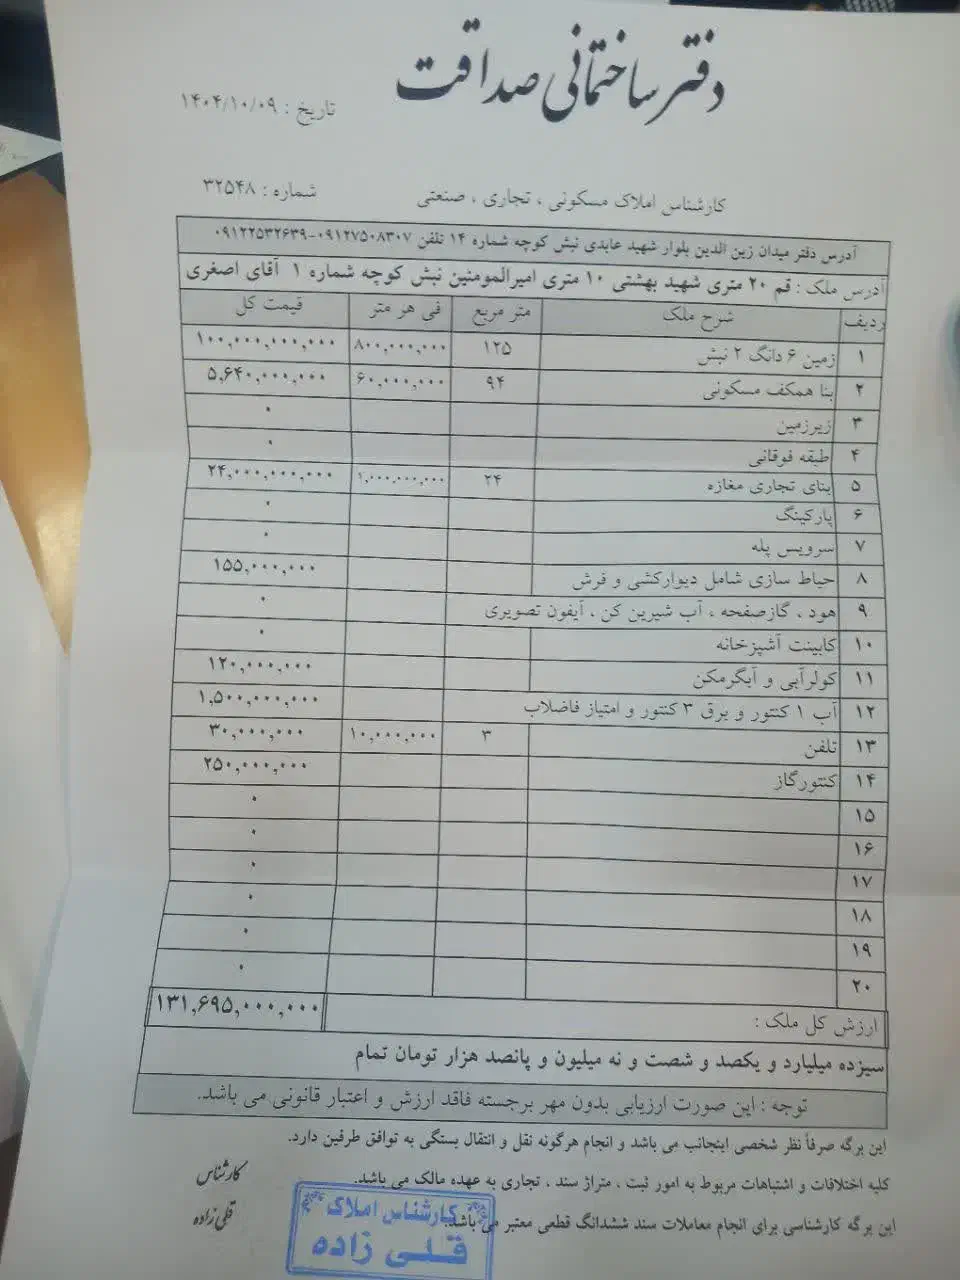 دفتر ساختمانی صداقت
تاریخ : ۱۴۰۴/۱۰/۰۹
کارشناس املاک مسکونی ، تجاری ، صنعتی
شماره : ۳۲۵۴۸
آدرس دفتر میدان زین الدین بلوار شهید عابدی نبش کوچه شماره ۱۴ تلفن ۰۹۱۲۷۵۰۸۳۰۷-۰۹۱۲۲۵۳۲۶۳۹
آدرس ملک : قم ۲۰ متری شهید بهشتی ۱۰ متری امیرالمومنین نبش کوچه شماره ۱ آقای اصغری
ردیف شرح ملک متر مربع فی هر متر قیمت کل
۱ زمین ۶ دانگ ۲ نبش ۱۲۵ ۸۰۰,۰۰۰,۰۰۰ ۱۰۰,۰۰۰,۰۰۰,۰۰۰
۲ بنا همکف مسکونی ۹۴ ۶۰,۰۰۰,۰۰۰ ۵,۶۴۰,۰۰۰,۰۰۰
۳ زیرزمین ۰
۴ طبقه فوقانی ۰
۵ بنای تجاری مغازه ۲۴ ۱,۰۰۰,۰۰۰,۰۰۰ ۲۴,۰۰۰,۰۰۰,۰۰۰
۶ پارکینگ ۰
۷ سرویس پله ۰
۸ حیاط سازی شامل دیوارکشی و فرش ۱۵۵,۰۰۰,۰۰۰
۹ هود ، گازصفحه ، آب شیرین کن ، آیفون تصویری ۰
۱۰ کابینت آشپزخانه ۰
۱۱ کولرآبی و آبگرمکن ۱۲۰,۰۰۰,۰۰۰
۱۲ آب ۱ کنتور و برق ۳ کنتور و امتیاز فاضلاب ۱,۵۰۰,۰۰۰,۰۰۰
۱۳ تلفن ۳ ۱۰,۰۰۰,۰۰۰ ۳۰,۰۰۰,۰۰۰
۱۴ کنتورگاز ۲۵۰,۰۰۰,۰۰۰
۱۵ ۰
۱۶ ۰
۱۷ ۰
۱۸ ۰
۱۹ ۰
۲۰ ۰
ارزش کل ملک : ۱۳۱,۶۹۵,۰۰۰,۰۰۰
سیزده میلیارد و یکصد و شصت و نه میلیون و پانصد هزار تومان تمام
توجه : این صورت ارزیابی بدون مهر برجسته فاقد ارزش و اعتبار قانونی می باشد.
این برگه صرفاً نظر شخصی اینجانب می باشد و انجام هرگونه نقل و انتقال بستگی به توافق طرفین دارد.
کلیه اختلافات و اشتباهات مربوط به امور ثبت ، متراژ سند ، تجاری به عهده مالک می باشد.
این برگه کارشناسی برای انجام معاملات سند ششدانگ قطعی معتبر می باشد.
کارشناس
قلی زاده
کارشناس املاک
قلی زاده